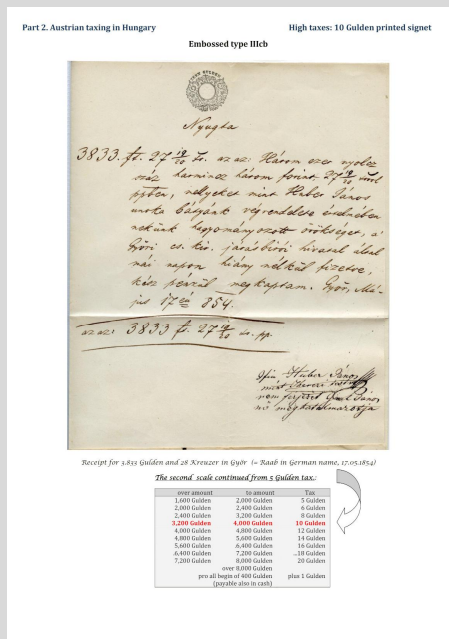 Part 2. Austrian taxing in Hungary High taxes: 10 Gulden printed signet
Embossed type IIIcb
Nyugta
3833 ft. 27 19/20 az az: Három ezer nyolcz
száz harmincz három forint 27 19/20
ppben, melyeket mint Huber János
bátyánk végrendelete
nekünk hagyományozott örökséget, a'
Győri cs. kir. járásbirói hivatal által
mái napon hiány nélkül fizetve,
kész pénzül megkaptam. Győr, Má-
jus 17én 854.
az az: 3833 ft. 27 19/20 pp.
Huber János
mint
nevem János
nő meghatalmazottja
Receipt for 3.833 Gulden and 28 Kreuzer in Györ (= Raab in German name, 17.05.1854)
The second scale continued from 5 Gulden tax.:
over amount to amount Tax
1,600 Gulden 2,000 Gulden 5 Gulden
2,000 Gulden 2,400 Gulden 6 Gulden
2,400 Gulden 3,200 Gulden 8 Gulden
3,200 Gulden 4,000 Gulden 10 Gulden
4,000 Gulden 4,800 Gulden 12 Gulden
4,800 Gulden 5,600 Gulden 14 Gulden
5,600 Gulden .6,400 Gulden 16 Gulden
.6,400 Gulden 7,200 Gulden ...18 Gulden
7,200 Gulden 8,000 Gulden 20 Gulden
over 8,000 Gulden
pro all begin of 400 Gulden plus 1 Gulden
(payable also in cash)